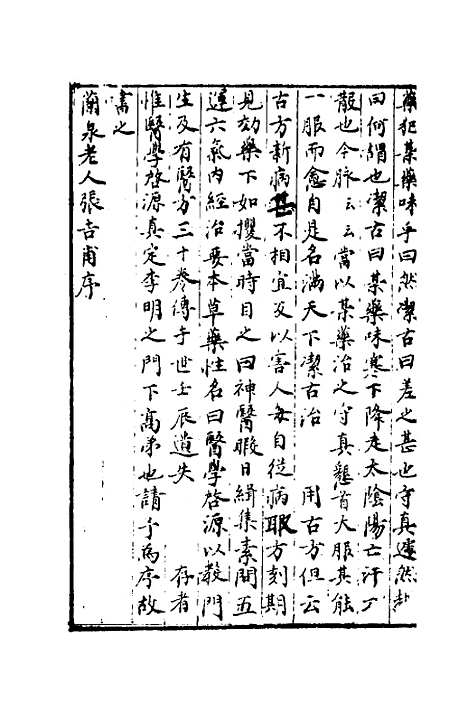 藥犯某藥味乎曰然潔古曰差之甚也守真遽然起
曰何謂也潔古曰某藥味寒下降走太陰陽亡汗不
散也今脉云云當以某藥治之守真懇首大服其能
一服而愈自是名滿天下潔古治 用古方但云
古方新病甚不相宜反以害人每自從病取方刻期
見効藥下如攫當時目之曰神醫暇日緝集素問五
運六氣内經治要本草藥性名曰醫學啓源以教門
生及有醫方三十卷傳于世壬辰遺失 存者
惟醫學啓源真定李明之門下高弟也請予為序故
書之
蘭泉老人張吉甫序